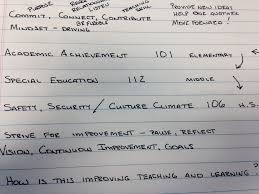 PURPOSE RELATIONSHIPS TEACHING PROVIDE NEW IDEAS
LISTEN HELP ONE ANOTHER
COMMIT, CONNECT, CONTRIBUTE MOVE FORWARD!
BE FLEXIBLE
MINDSET - DRIVING
ACADEMIC ACHIEVEMENT 101 ELEMENTARY
SPECIAL EDUCATION 112 MIDDLE
SAFETY, SECURITY / CULTURE CLIMATE 106 H.S.
STRIVE FOR IMPROVEMENT - PAUSE, REFLECT
VISION, CONTINUOUS IMPROVEMENT, GOALS
HOW IS THIS IMPROVING TEACHING AND LEARNING?